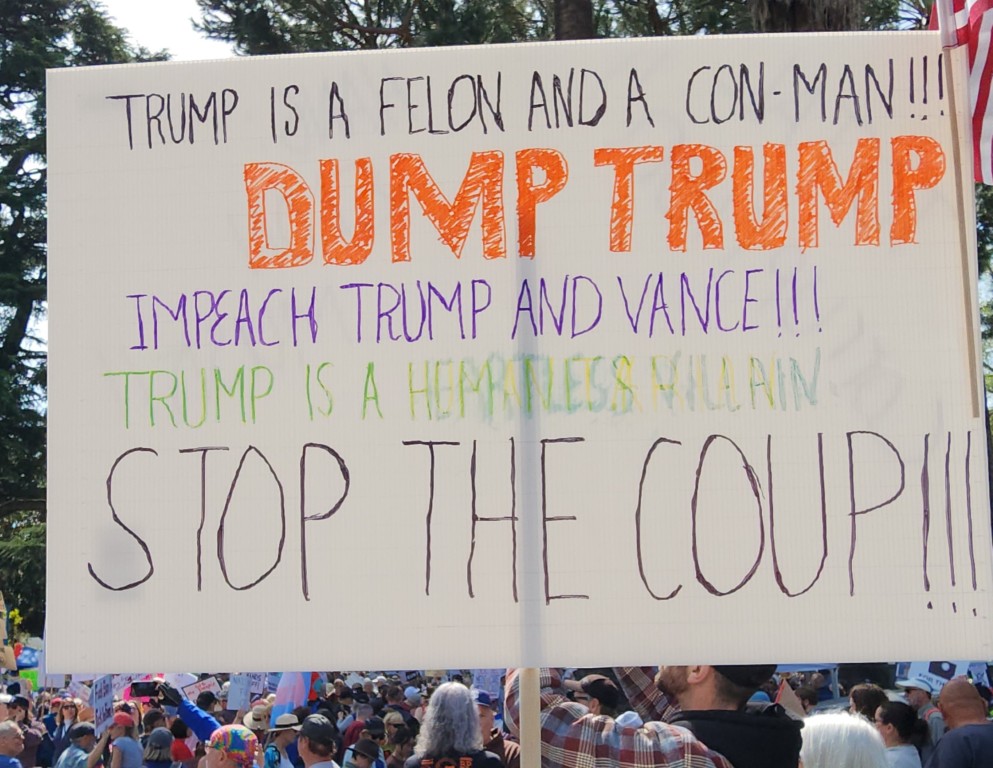 TRUMP IS A FELON AND A CON-MAN!!!
DUMP TRUMP
IMPEACH TRUMP AND VANCE!!!
TRUMP IS A
STOP THE COUP!!!